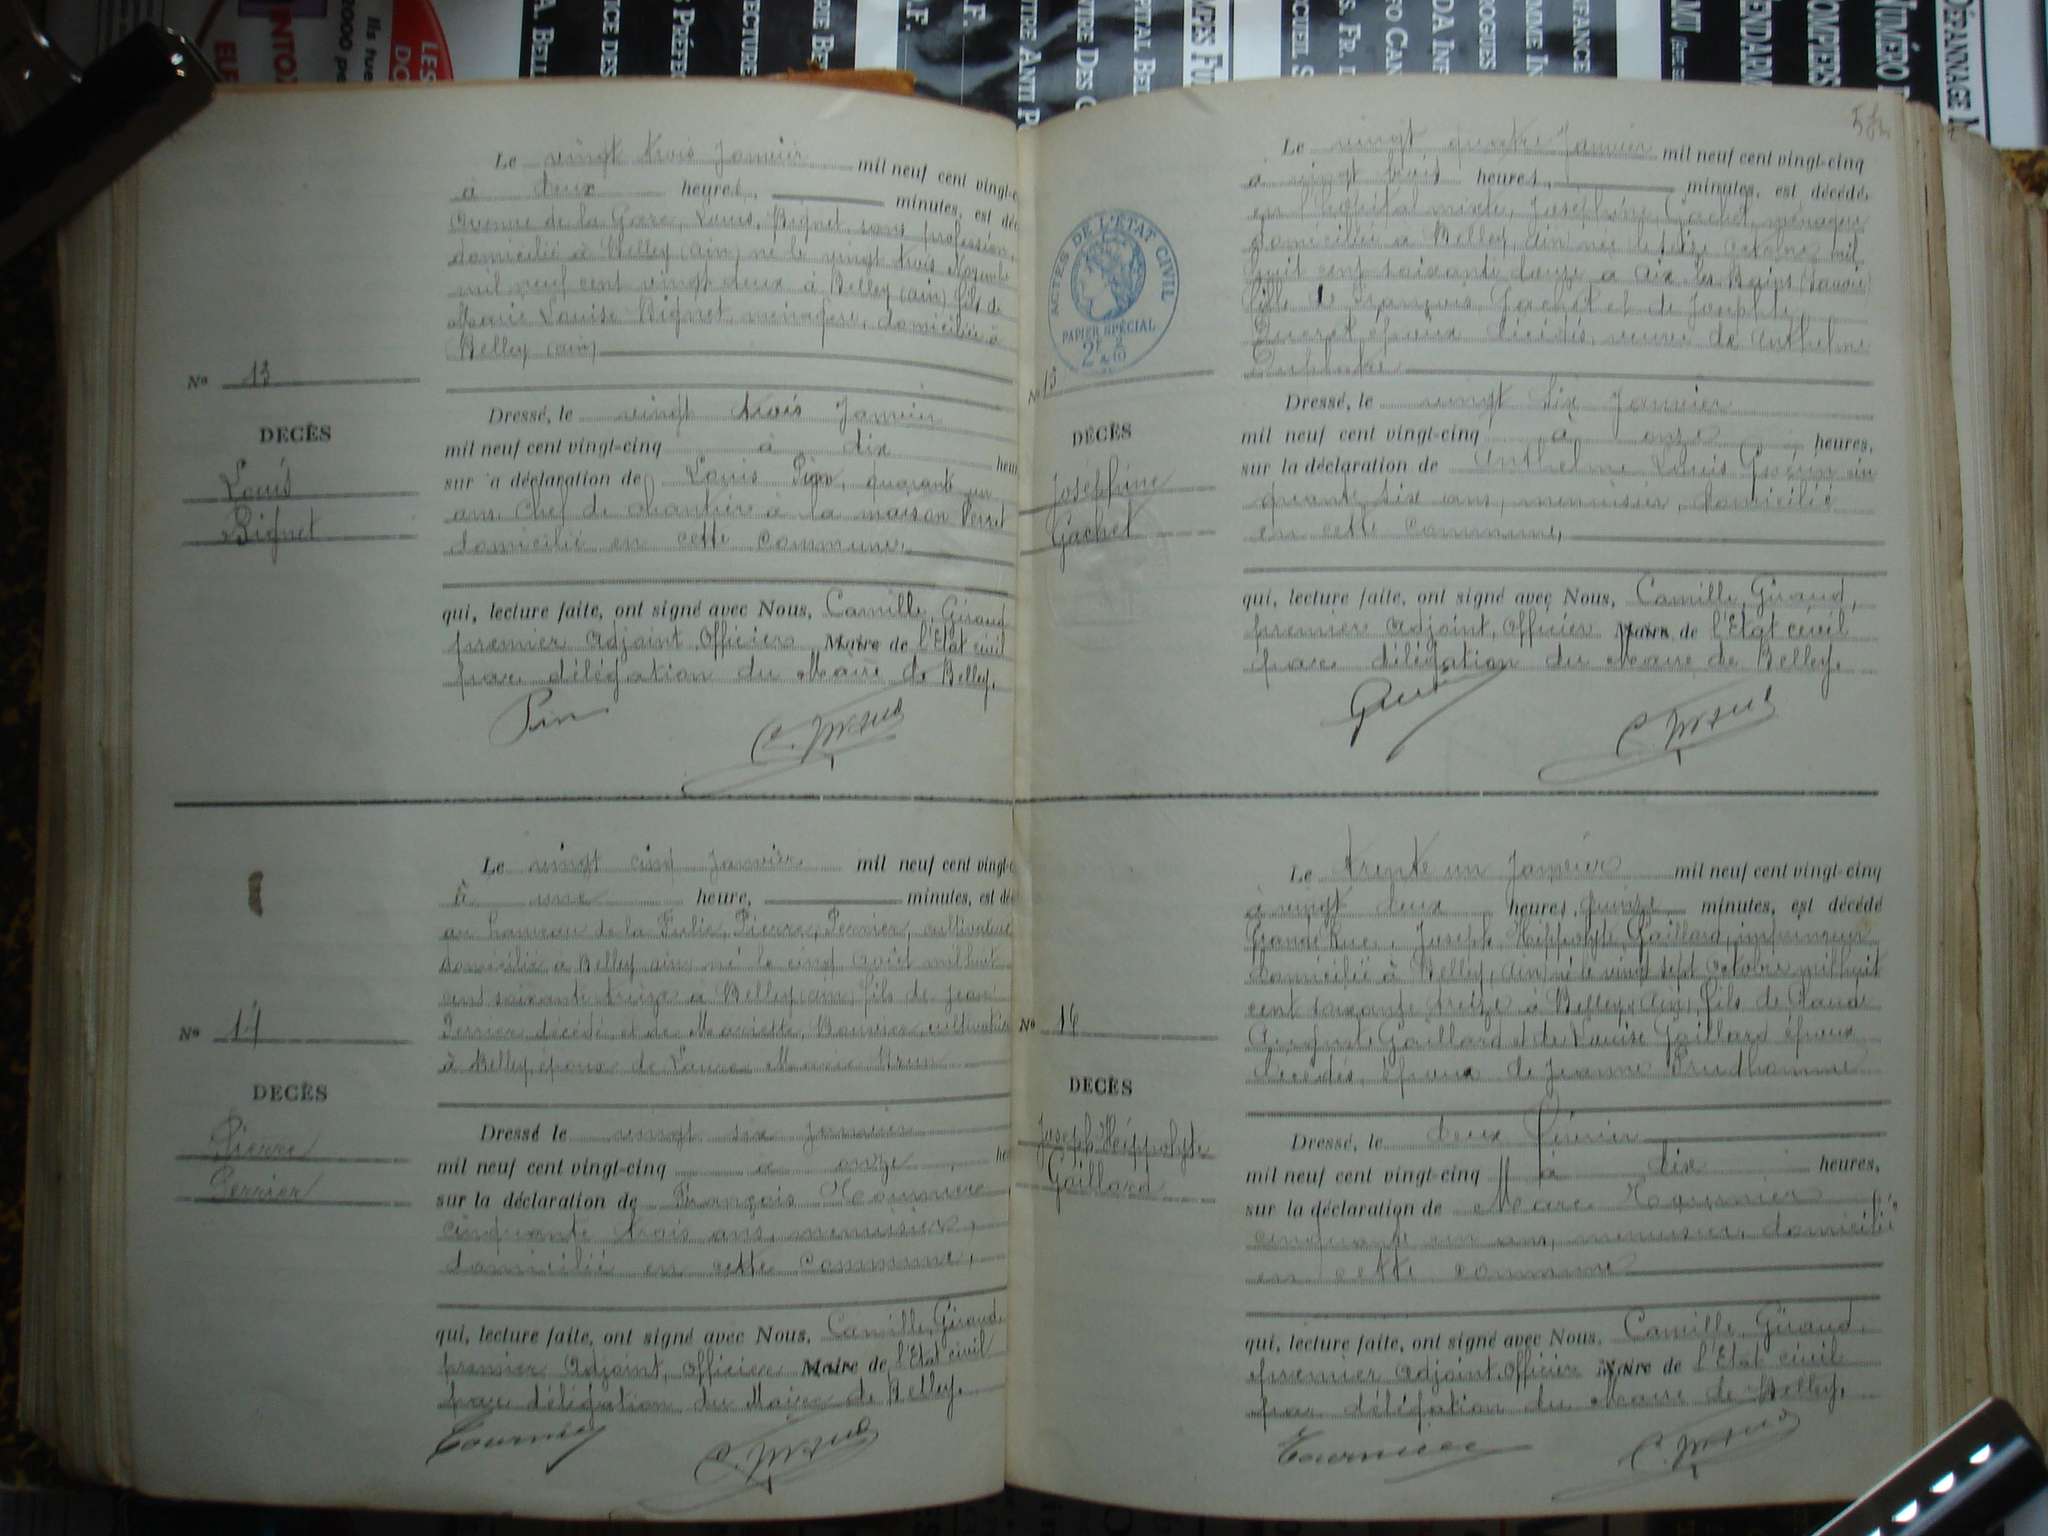 Le vingt trois Janvier mil neuf cent vingt-c
à deux heures, minutes, est déc
Avenue de la Gare, Louis, Bignet, sans profession,
domicilié à Belley (ain) né le vingt trois Novembre
mil neuf cent vingt deux à Belley (ain) fils de
Marie Louise Bignet, ménagère, domiciliée à
Belley (ain)
No 13
DECÈS
Louis
Bignet
Dressé, le vingt trois Janvier
mil neuf cent vingt-cinq à dix heu
sur a déclaration de Louis Pin, quarante un
ans, chef de chantier à la maison Perret
domicilié en cette commune,
qui, lecture faite, ont signé avec Nous, Camille, Giraud
premier Adjoint, Officier Maire de l'Etat civil
par délégation du Maire de Belley.
Pin C. Giraud
Le vingt cinq Janvier mil neuf cent vingt-c
à une heure, minutes, est déc
au hameau de la Pierre, Perrier, cultivateur
domicilié à Belley ain né le cinq août mil huit
cent soixante treize à Belley ain, fils de Jean
Perrier décédé et de Mariette cultivatrice
à Belley, époux de Laure Marie Brun
No 14
DECÈS
Pierre
Perrier
Dressé le vingt six Janvier
mil neuf cent vingt-cinq à onze he
sur la déclaration de François Tournier
cinquante trois ans, menuisier,
domicilié en cette commune,
qui, lecture faite, ont signé avec Nous, Camille, Giraud
premier Adjoint, Officier Maire de l'Etat civil
par délégation du Maire de Belley.
Tournier C. Giraud
Le vingt quatre Janvier mil neuf cent vingt-cinq
à vingt trois heures, minutes, est décédé,
en l'hôpital mixte, Joséphine, Gachet, ménagère
domiciliée à Belley, ain née le seize octobre mil
huit cent soixante douze à Aix les Bains (Savoie)
fille de François Gachet et de Josephte
époux décédés, veuve de Anthelme
ACTES DE L'ÉTAT CIVIL
PAPIER SPÉCIAL
No 15
DÉCÈS
Joséphine
Gachet
Dressé, le vingt six Janvier
mil neuf cent vingt-cinq à onze heures,
sur la déclaration de Anthelme Louis Guérin cin
quante six ans, menuisier, domicilié
en cette commune,
qui, lecture faite, ont signé avec Nous, Camille, Giraud,
premier Adjoint, Officier Maire de l'Etat civil
par délégation du Maire de Belley.
Guérin C. Giraud
Le trente un Janvier mil neuf cent vingt-cinq
à vingt deux heures, quinze minutes, est décédé
Grande Rue, Joseph Hippolyte, Gaillard, imprimeur
domicilié à Belley, ain, né le vingt sept octobre mil huit
cent soixante treize à Belley, Ain, fils de Claude
Auguste Gaillard et de Louise Gaillard époux
décédés, époux de Jeanne Prudhomme
No 16
DECÈS
Joseph Hippolyte
Gaillard
Dressé, le deux Février
mil neuf cent vingt-cinq à dix heures,
sur la déclaration de Marc Tournier
cinquante un ans, menuisier, domicilié
en cette commune
qui, lecture faite, ont signé avec Nous, Camille, Giraud,
premier Adjoint, Officier Maire de l'Etat civil
par délégation du Maire de Belley.
Tournier C. Giraud